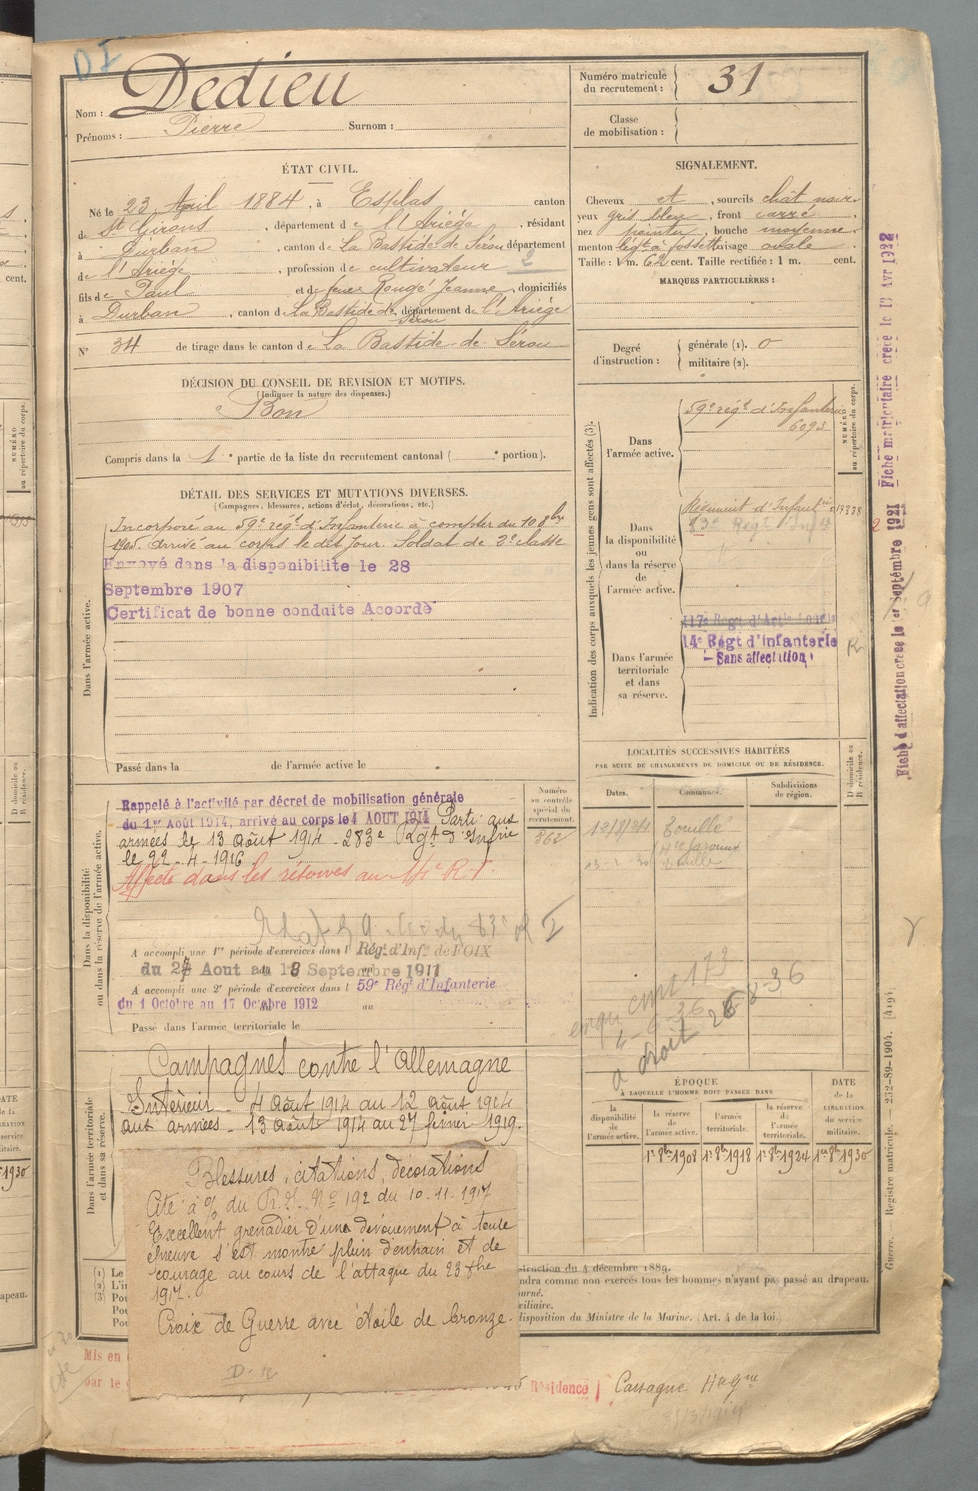 DI
Nom : Dedieu
Prénoms : Pierre Surnom :
ÉTAT CIVIL.
Né le 23 April 1884, à Esplas canton
de St Girons, département de l'Ariège, résidant
à Durban, canton de La Bastide de Sérou département
de l'Ariège, profession de cultivateur 2
fils de Paul et de feue Rougé Jeanne, domiciliés
à Durban, canton de La Bastide de Sérou, département de l'Ariège
N° 34 de tirage dans le canton de La Bastide-de-Sérou
DÉCISION DU CONSEIL DE REVISION ET MOTIFS.
(Indiquer la nature des dispenses.)
Bon
Compris dans la 1e partie de la liste du recrutement cantonal ( e portion).
DÉTAIL DES SERVICES ET MUTATIONS DIVERSES.
(Campagnes, blessures, actions d'éclat, décorations, etc.)
Dans l'armée active.
Incorporé au 59e régt d'Infanterie à compter du 10 8bre
1905. Arrivé au corps le dit jour. Soldat de 2e classe
Envoyé dans la disponibilité le 28
Septembre 1907
Certificat de bonne conduite Accordé
Passé dans la de l'armée active le
Dans la disponibilité
ou dans la réserve de l'armée active.
Rappelé à l'activité par décret de mobilisation générale
du 1er Août 1914, arrivé au corps le 4 AOUT 1914 Parti aux
armées le 13 Août 1914 - 283e Rgt d'Infrie
le 22-4-1916
Affecté dans les réserves au 14e R.I.
A accompli une 1re période d'exercices dans l Régt d'Infie de FOIX
du 27 Aout au 18 Septembre 1911
A accompli une 2e période d'exercices dans l 59e Régt d'Infanterie
du 1 Octobre au 17 Octobre 1912
Passé dans l'armée territoriale le
Dans l'armée territoriale
et dans sa réserve.
Campagnes contre l'Allemagne
Intérieur - 4 Août 1914 au 12 Août 1914
aux armées - 13 Août 1914 au 27 février 1919.
Blessures, citations, décorations
Cité à o/ du R.I. No 192 du 10-11-1917
Excellent grenadier d'une dévouement à toute
épreuve s'est montré plein d'entrain et de
courage au cours de l'attaque du 23 8bre
1917.
Croix de Guerre avec étoile de bronze.
Numéro
au contrôle
spécial du
recrutement.
862
Numéro matricule
du recrutement : 31
Classe
de mobilisation :
SIGNALEMENT.
Cheveux et, sourcils chât noir
yeux gris bleu, front carré,
nez pointu, bouche moyenne
menton légt à fossette visage ovale
Taille : 1 m. 62 cent. Taille rectifiée : 1 m. cent.
MARQUES PARTICULIÈRES :
Degré
d'instruction :
générale (1). 0
militaire (2).
Indication des corps auxquels les jeunes gens sont affectés (3).
NUMÉRO
au répertoire du corps.
Dans
l'armée active.
59e régt d'Infanterie
6093
Dans
la disponibilité
ou
dans la réserve
de
l'armée active.
Régiment d'Infanterie
Dans l'armée
territoriale
et dans
sa réserve.
117e Régt d'Artie Lourde
14e Régt d'infanterie
- Sans affectation
R
LOCALITÉS SUCCESSIVES HABITÉES
PAR SUITE DE CHANGEMENTS DE DOMICILE OU DE RÉSIDENCE.
Dates. Communes. Subdivisions
de région.
D domicile ou
R résidence.
à droit 28-8-36
ÉPOQUE
À LAQUELLE L'HOMME DOIT PASSER DANS
la
disponibilité
de
l'armée active.
la réserve
de
l'armée active.
l'armée
territoriale.
la réserve
de
l'armée
territoriale.
DATE
de la
LIBÉRATION
du service
militaire.
1r 8bre 1908 1r 8bre 1918 1r 8bre 1924 1er 8bre 1930
Fiche matriculaire créée le 13 Avr 1922
Fiche d'affectation créée le 1er Septembre 1921
Guerre. — Registre matricule. 232-89-1904. [419]
(1) Le
(2) L'in
(3) Pou
Pou
Pou
struction du 4 décembre 1889.
ndra comme non exercés tous les hommes n'ayant pas passé au drapeau.
ourné.
xiliaire.
disposition du Ministre de la Marine. (Art. 4 de la loi.
Mis en
par le
Résidence